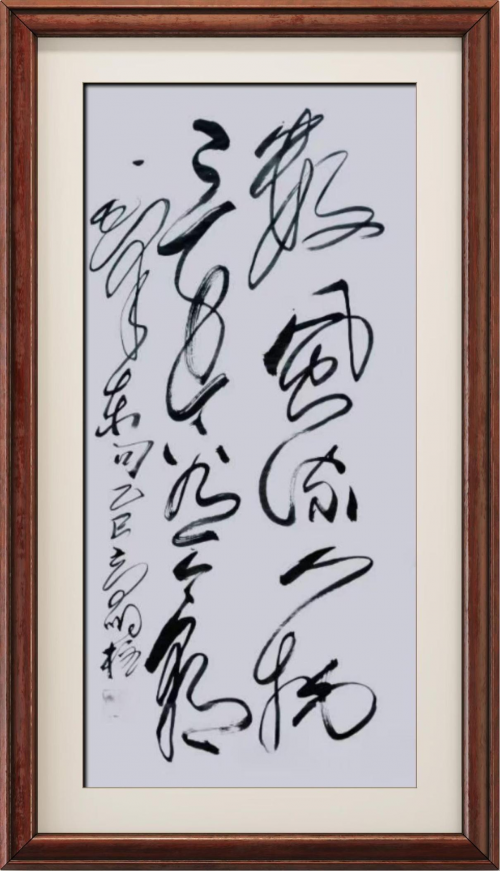 数風流人物
还看今朝
毛泽东句乙巳